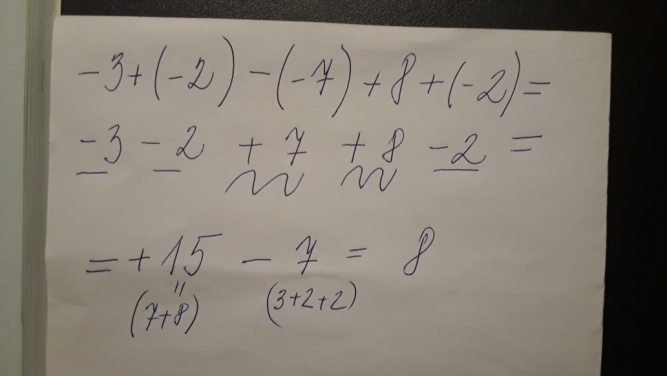 -3+(-2)-(-7)+8+(-2)=
-3-2 +7 +8 -2 =
=+15 - 7 = 8
"
(7+8) (3+2+2)